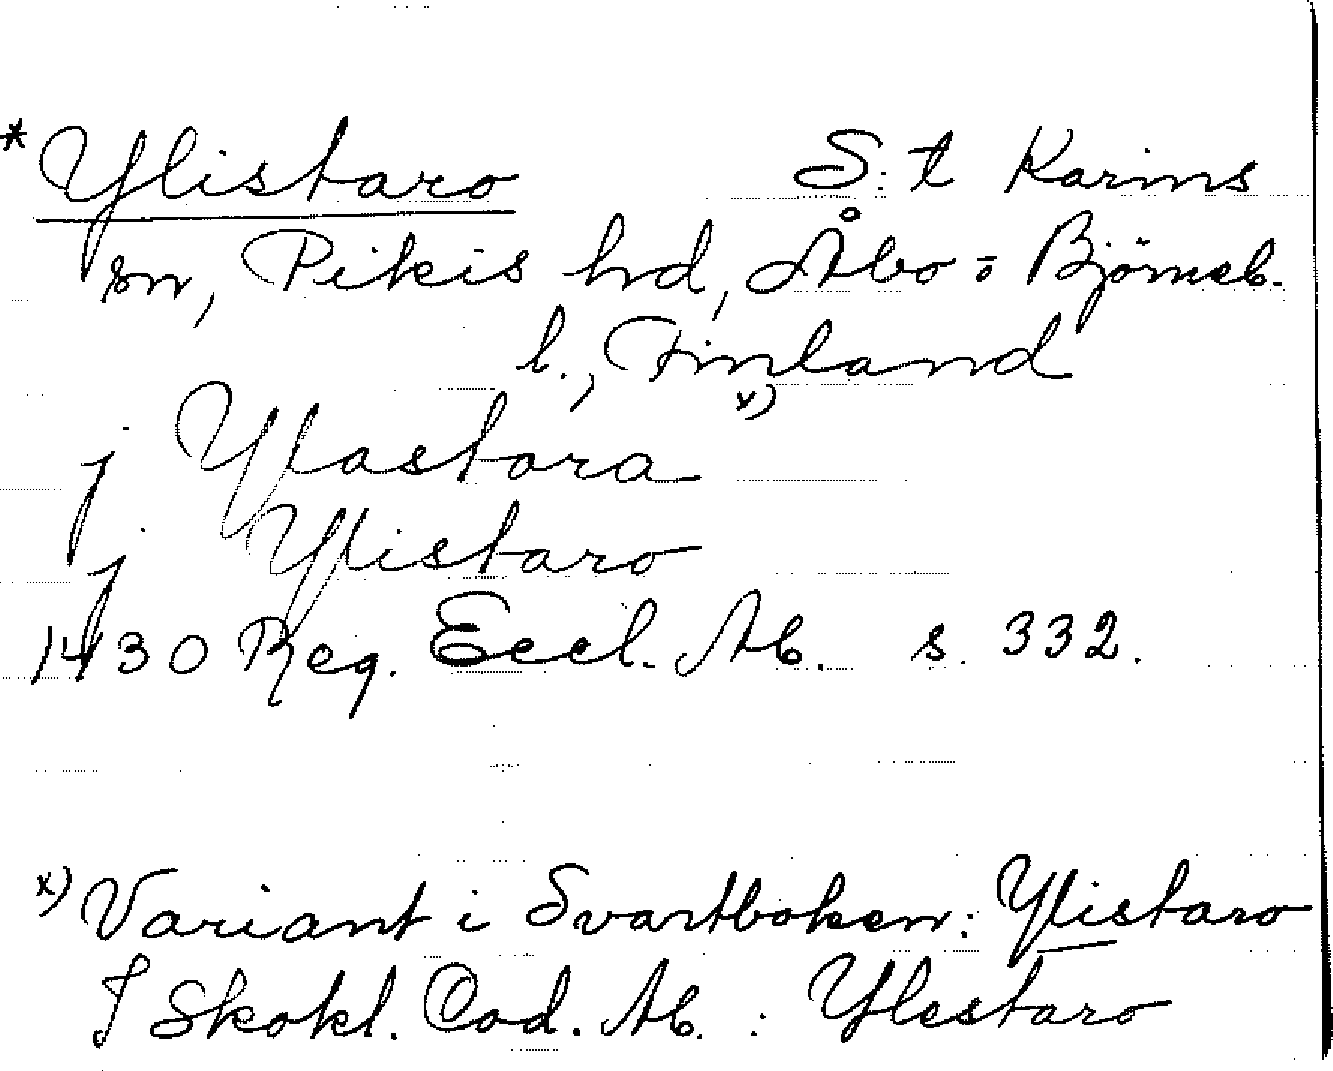 * Ylistaro S:t Karins
sn, Pikis hd, Åbo o Björneb.
l., Finland
x)
j Ylastara
j Ylistaro
1430 Reg. Eccl. Ab. s. 332.
x) Variant i Svartboken: Ylistaro
I Skokl. Cod. Ab. : Ylestaro